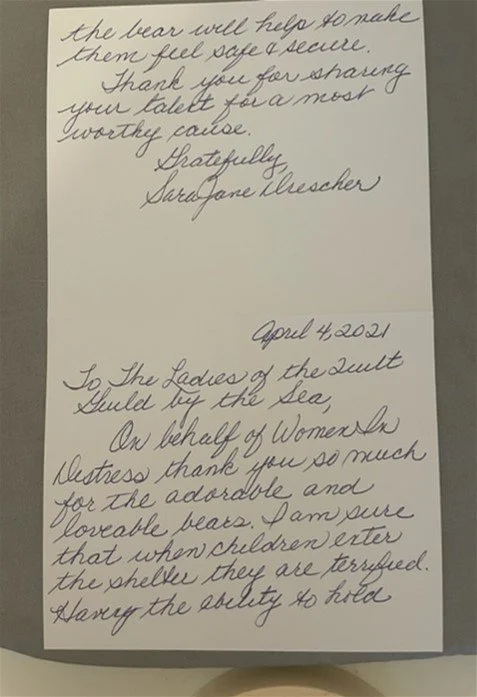 the bear will help to make
them feel safe & secure.
Thank you for sharing
your talent for a most
worthy cause.
Gratefully,
Sara Jane Drescher
April 4, 2021
To The Ladies of the Quilt
Guild by the Sea,
On behalf of Women In
Distress thank you so much
for the adorable and
loveable bears. I am sure
that when children enter
the shelter they are terrified.
Having the ability to hold